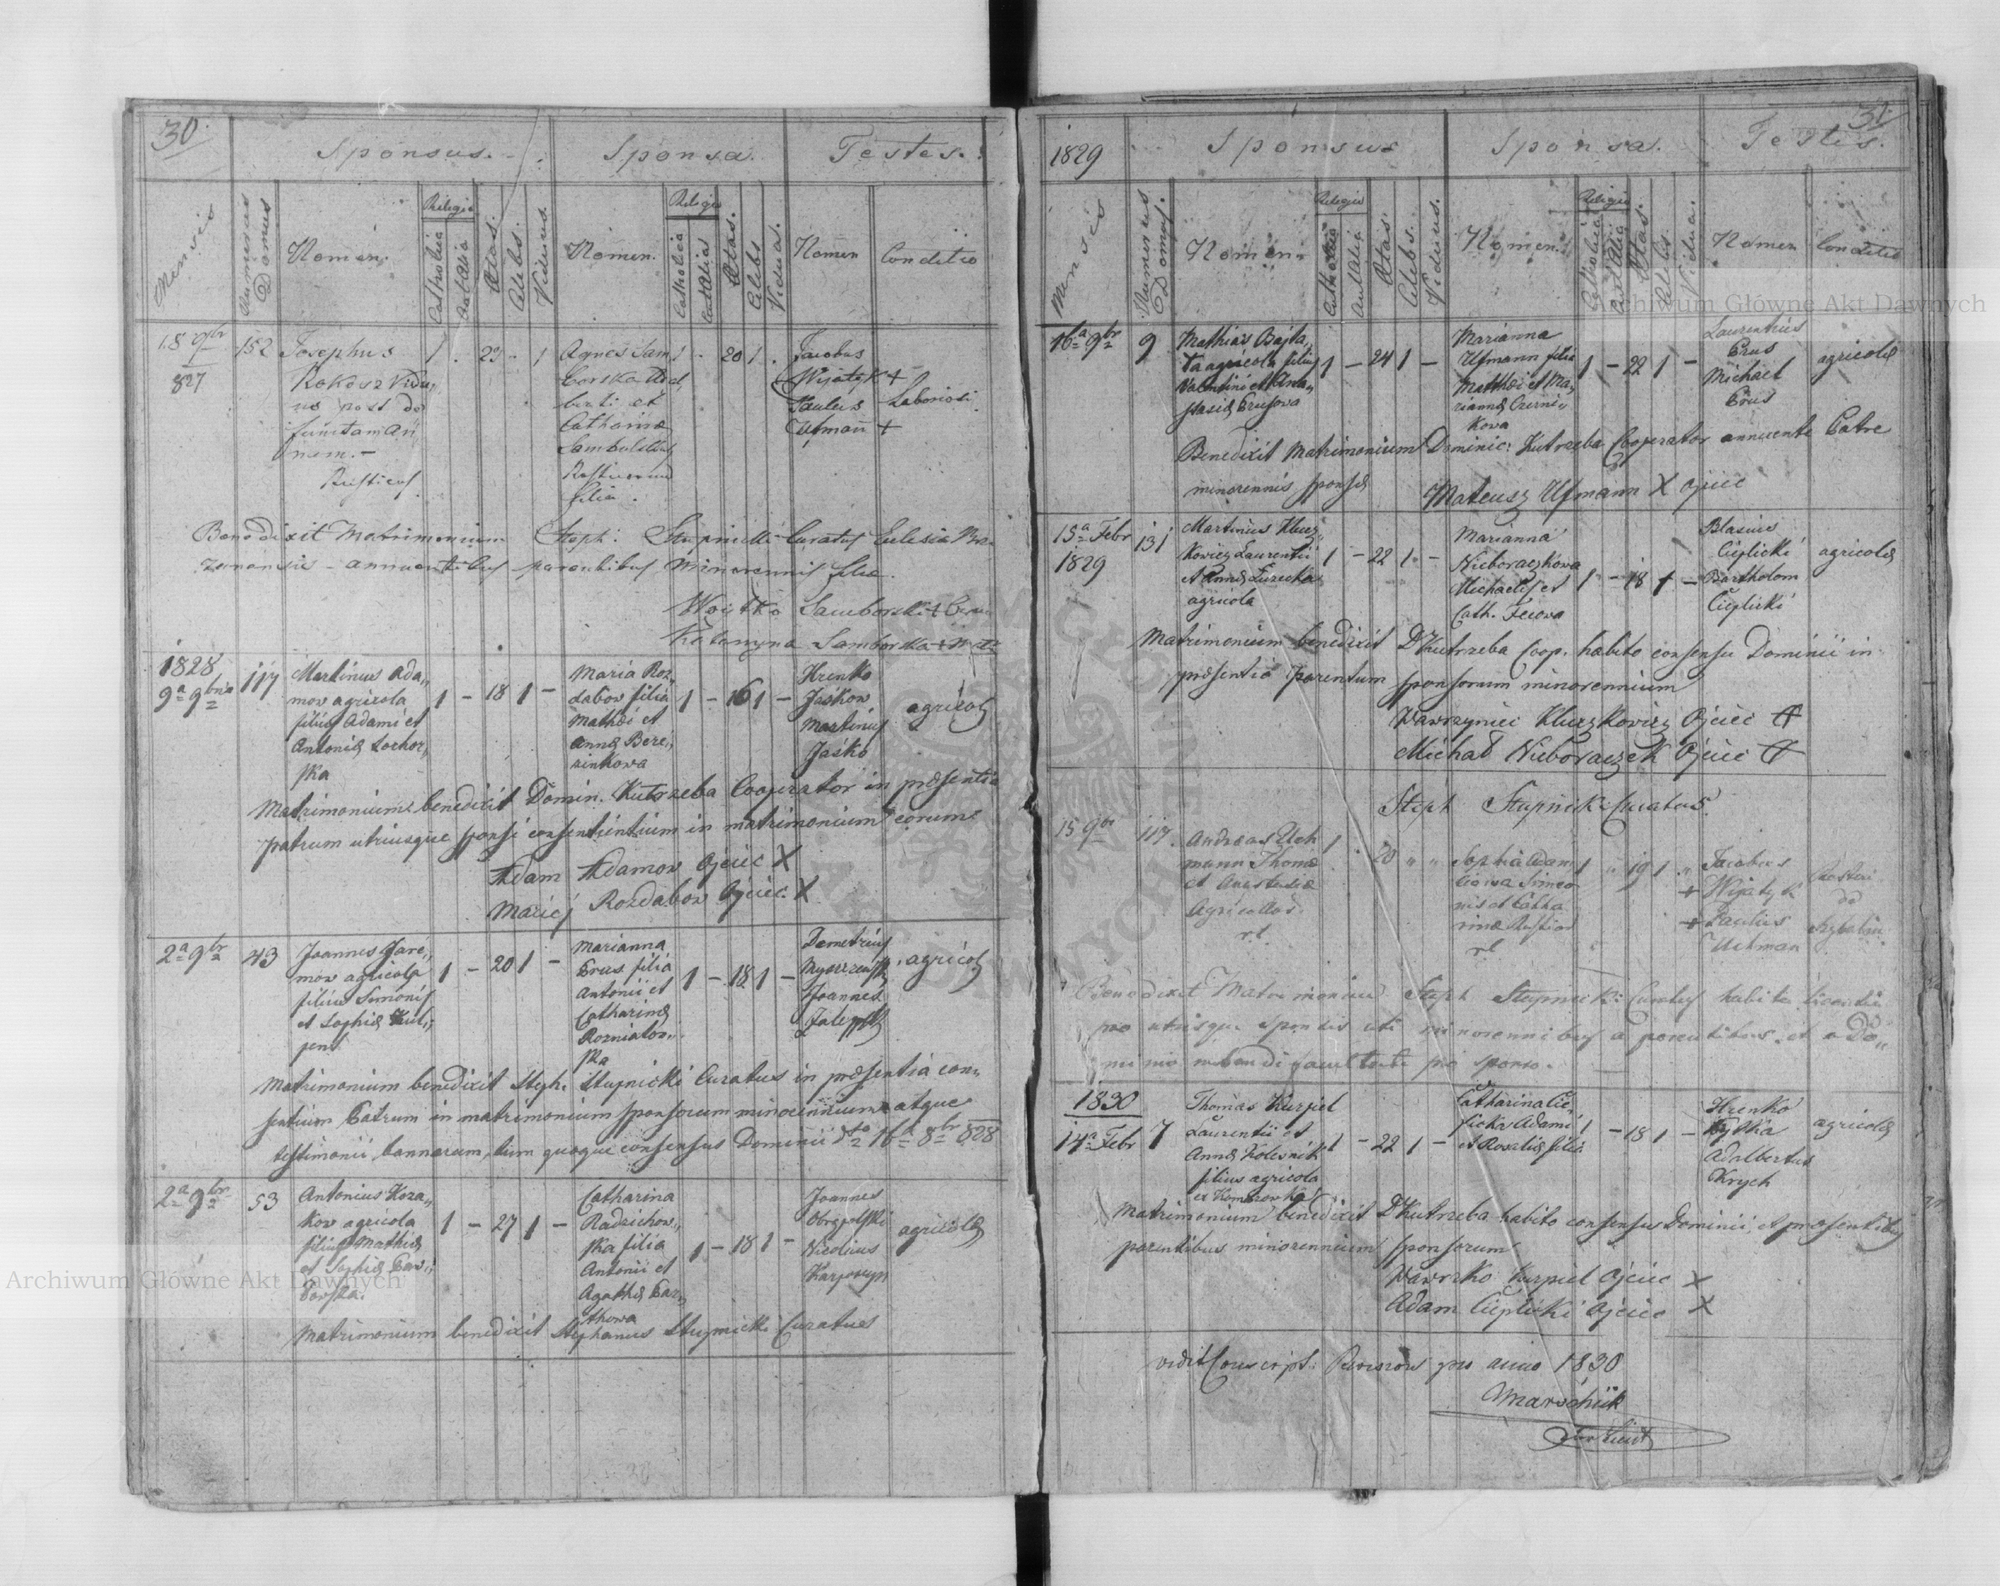 30.
Sponsus.
Sponsa.
Testes.
Mensis
Numerus Domus
Nomen.
Religio
Catholica
aut Alia
Ætas.
Celebs.
Viduus.
Nomen.
Religio
Catholica
aut Alia
Ætas.
Celebs
Vidua.
Nomen
Conditio
15 9br
827
152
Josephus
Kokosz Vidu„
us post de
functam An„
nam. –
Rusticus
1 . 29 . 1
Agnes Sam
borska Adal
berti et
Catharinæ
Rusticorum
filia.
1 . 20 1 .
Jacobus
Wijatyk +
Paulus
Utman +
Laboriosi
Benedixit Matrimonium Steph: Stupnicki Curatus Eclesiæ
annuentibus parentibus Minorennis filiæ.
Woitko Samborski +
Katarzyna Samborska +
1828
9a 9bris
117
Martinus Ada„
mow agricola
filius Adami et
Antoniæ
ska
1 – 18 1 –
Maria Roz„
dabow filia
Mathæi et
Annæ Bere„
zinkowa
1 – 16 1 –
Hrenko
Jaskow
Martinus
Jaśko
agricolæ
Matrimonium benedixit Domin. Kutrzeba Cooperator in præsentia
patrum utriusque sponsi consentientium in matrimonium eorum
Adam Adamow Ojciec X
Maciej Rozdabow Ojciec. X
2a 9br
43
Joannes Jare„
mow agricola
filius Simonis
et Sophiæ
1 – 20 1 –
Marianna
Crus filia
Antonii et
Catharinæ
Rozniatow„
ska
1 – 18 1 –
Demetrius
Joannes
agricolæ
Matrimonium benedixit Steph. Stupnicki Curatus in præsentia con„
sentium Patrum in matrimonium sponsorum minorennium atque
testimonii bannorum, tum quoque consensus Dominii dto 16a 8br 828
2a 9br
53
Antonius Koza„
kow agricola
filius Mathiæ
et Sophiæ
1 – 27 1 –
Catharina
Radzichow„
ska filia
Antonii et
Agathæ
1 – 18 1 –
Joannes
Obrzpalski
Nicolaus
agricolæ
Matrimonium benedixit Stephanus Stupnicki Curatus
31.
1829
Sponsus
Sponsa.
Testes.
Mensis
Numerus Domus.
Nomen
Religio
Catholica
aut Alia
Ætas.
Celebs.
Viduus.
Nomen.
Religio
Catholica
aut Alia
Ætas.
Celebs.
Vidua.
Nomen
Conditio
16a 9br
9
Mathias Bajta„
ta agricola filius
Valentini et Ana„
stasiæ Crusowa
1 – 24 1 –
Marianna
Utmann filia
Matthæi et Ma„
riannæ Czerni„
kowa
1 – 22 1 –
Laurentius
Crus
Michael
Crus
agricolæ
Benedixit Matrimonium Dominic: Kutrzeba Cooperator annuente Patre
minorennis sponsæ
Mateusz Utmann X ojciec
15a Febr
1829
131
Martinus Klusz„
kowicz Laurentii
et Annæ
agricola
1 – 22 1 –
Marianna
Nieboraczkowa
Michaelis et
Cath. Fecowa
1 – 18 1 –
Blasius
Cieplicki
Bartholom
Cieplicki
agricolæ
Matrimonium benedixit D Kutrzeba Coop. habito consensu Dominii in
præsentia Parentum sponsorum minorennium
Wawrzyniec Kluszkowicz Ojciec +
Michał Nieboraczek Ojciec +
Steph Stupnicki Curatus
15 9br
117.
Andreas Uch
mann Thomæ
et Anastasiæ
Agricolar.
rl.
1 . 20 „ „
Sophia Adam
ciowa Simeo
nis et Catha
rinæ Rustico
rl
1 „ 19 1 „
Jacobus
+ Wijatyk
+ Paulus
Uutman
Benedixit Matrimonium Steph Stupnicki Curatus habita licentia
pro utrisque sponsis uti minorennibus a parentibus, et a Do„
minio nubendi facultate pro sponso.
1830
14a Febr
7
Thomas Kurpiel
Laurentii et
Annæ Kolesnik
filius agricola
1 – 22 1 –
Catharina Cie„
plicka Adami
et Rosaliæ filia
1 – 18 1 –
Hrenko
Adalbertus
Krych
agricolæ
Matrimonium benedixit D Kutrzeba habito consensus Dominii, et præsentibus
parentibus minorennium sponsorum
Wawrzko Kurpiel Ojciec X
Adam Cieplicki Ojciec X
vidit Conscript: Revisions pro anno 1830
Archiwum Główne Akt Dawnych
Archiwum Główne Akt Dawnych